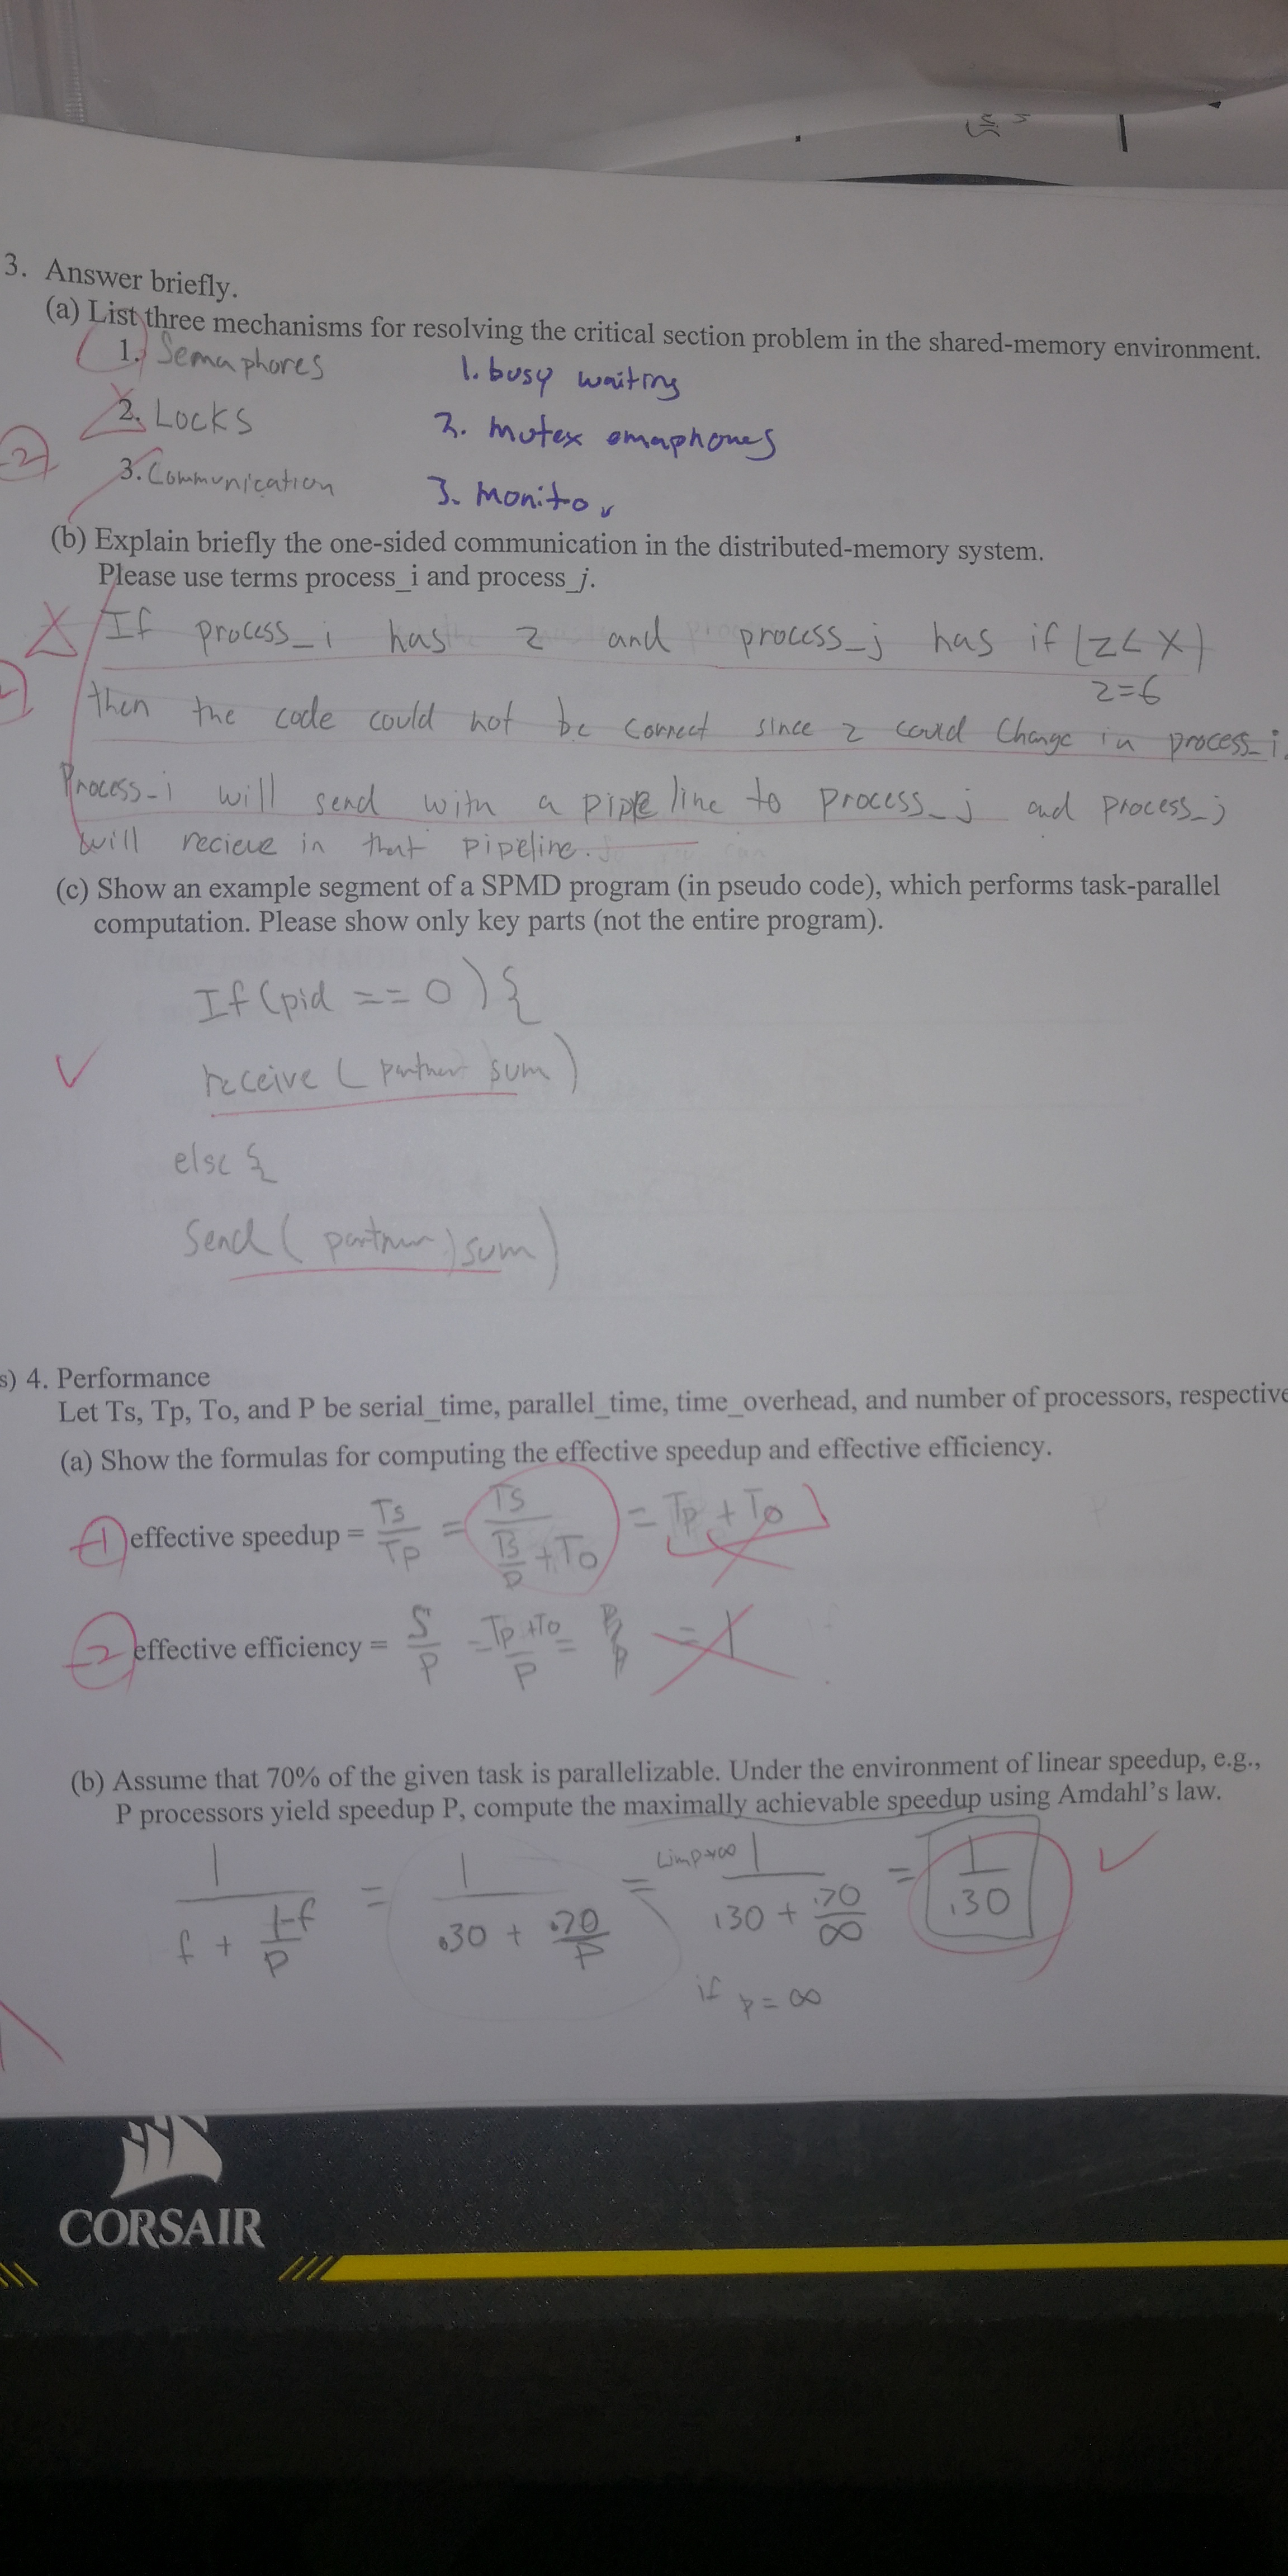 3. Answer briefly.
(a) List three mechanisms for resolving the critical section problem in the shared-memory environment.
1. Semaphores 1. busy waiting
2. Locks 2. mutex emaphones
-2
3. Communication 3. Monitor
(b) Explain briefly the one-sided communication in the distributed-memory system.
Please use terms process_i and process_j.
If process_i has z and process_j has if (z < x)
z=6
then the code could not be correct since z could change in process_i.
Process_i will send with a pipe line to process_j and process_j
will recieve in that pipeline.
(c) Show an example segment of a SPMD program (in pseudo code), which performs task-parallel
computation. Please show only key parts (not the entire program).
If (pid == 0) {
receive ( partner sum)
else {
Send ( partner) sum)
s) 4. Performance
Let Ts, Tp, To, and P be serial_time, parallel_time, time_overhead, and number of processors, respective
(a) Show the formulas for computing the effective speedup and effective efficiency.
-1 effective speedup = Ts/Tp = Ts/(Ts/P + To) = Tp + To
-2 effective efficiency = S/P = Tp + To/P = P/P = 1
(b) Assume that 70% of the given task is parallelizable. Under the environment of linear speedup, e.g.,
P processors yield speedup P, compute the maximally achievable speedup using Amdahl's law.
1/(f + 1-f/P) = 1/(.30 + .70/P) = Lim p→∞ 1/(.30 + .70/∞) = 1/.30
if p = ∞
CORSAIR